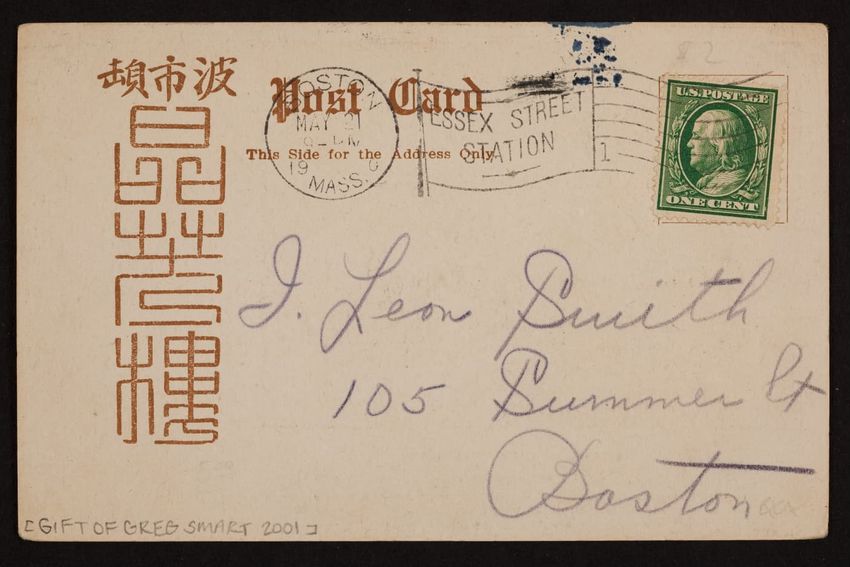 波市頓
晶芳樓
Post Card
This Side for the Address Only
BOSTON
MAY 21
19
MASS.
ESSEX STREET
STATION
1
U.S. POSTAGE
ONE CENT
J. Leon Smith
105 Summer St
Boston
[GIFT OF GREG SMART 2001]